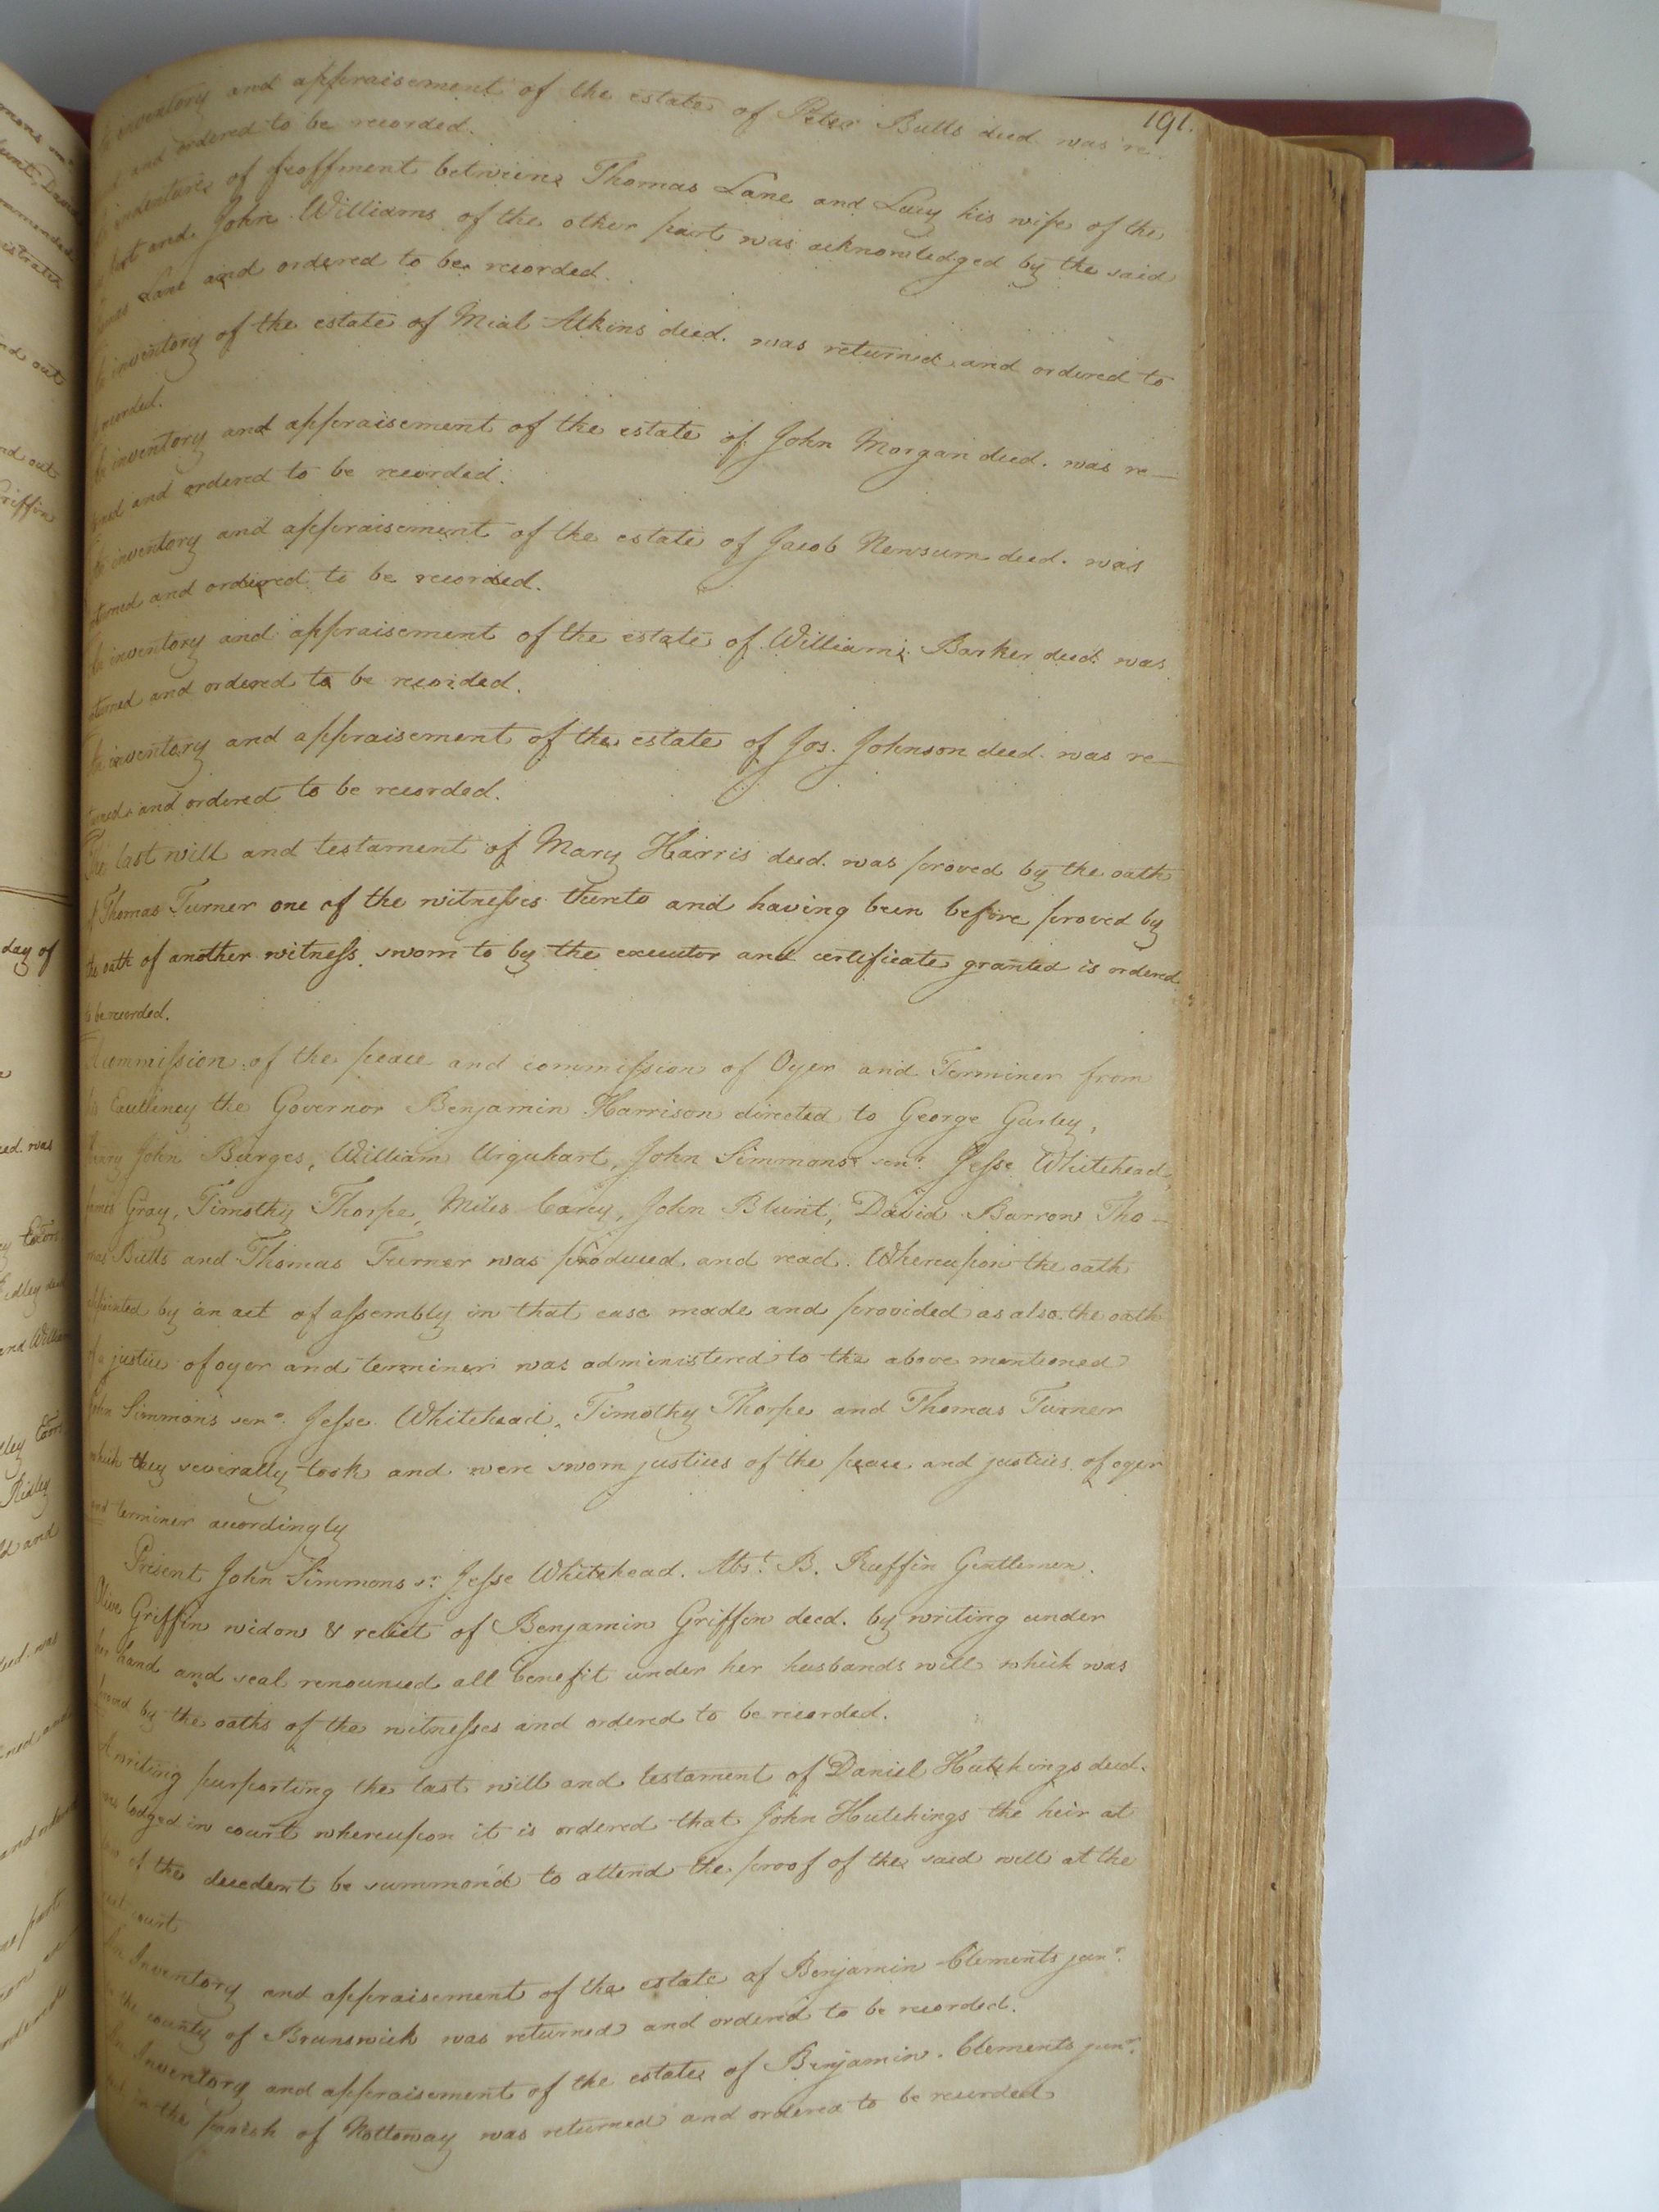 191.
inventory and appraisement of the estate of Peter Butts deed was re-
and ordered to be recorded.
indenture of feoffment between Thomas Lane and Lucy his wife of the
part and John Williams of the other part was acknowledged by the said
Lane and ordered to be recorded.
inventory of the estate of Mial Atkins decd. was returned and ordered to
recorded.
inventory and appraisement of the estate of John Morgan decd. was re-
and ordered to be recorded.
inventory and appraisement of the estate of Jacob Newsum decd. was
and ordered to be recorded.
inventory and appraisement of the estate of William Barker decd. was
and ordered to be recorded.
inventory and appraisement of the estate of Jos. Johnson decd. was re-
and ordered to be recorded.
The last will and testament of Mary Harris decd. was proved by the oath
of Thomas Turner one of the witnesses thereto and having been before proved by
the oath of another witness sworn to by the executor and certificate granted is ordered
to be recorded.
commission of the peace and commission of Oyer and Terminer from
his Excellency the Governor Benjamin Harrison directed to George Gurley,
Henry John Burges, William Urquhart, John Simmons senr. Jesse Whitehead,
James Gray, Timothy Thorpe, Miles Cary, John Blunt, David Barrow Tho-
mas Butts and Thomas Turner was produced and read. Whereupon the oath
appointed by an act of assembly in that case made and provided as also the oath
of a justice of oyer and terminer was administered to the above mentioned
John Simmons senr. Jesse Whitehead, Timothy Thorpe and Thomas Turner
which they severally took and were sworn justices of the peace and justices of oyer
and terminer accordingly
Present John Simmons sr. Jesse Whitehead. Abst. B. Ruffin Gentlemen.
Olive Griffin widow & relict of Benjamin Griffin decd. by writing under
her hand and seal renounced all benefit under her husbands will which was
proved by the oaths of the witnesses and ordered to be recorded.
A writing purporting the last will and testament of Daniel Hutchings decd.
was lodged in court whereupon it is ordered that John Hutchings the heir at
law of the decedent be summon'd to attend the proof of the said will at the
next court
An Inventory and appraisement of the estate of Benjamin Clements junr.
in the county of Brunswick was returned and ordered to be recorded.
An Inventory and appraisement of the estate of Benjamin Clements junr.
in the parish of Nottoway was returned and ordered to be recorded